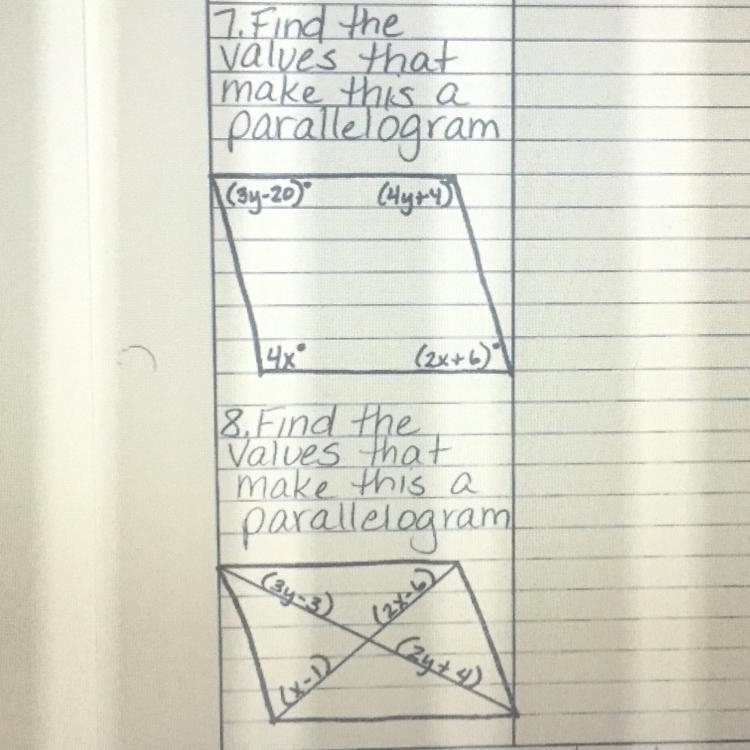 7. Find the
values that
make this a
parallelogram
(3y-20)° (4y+4)°
4x° (2x+6)°
8. Find the
values that
make this a
parallelogram
(3y-3) (2x-6)
(x-1) (2y+4)